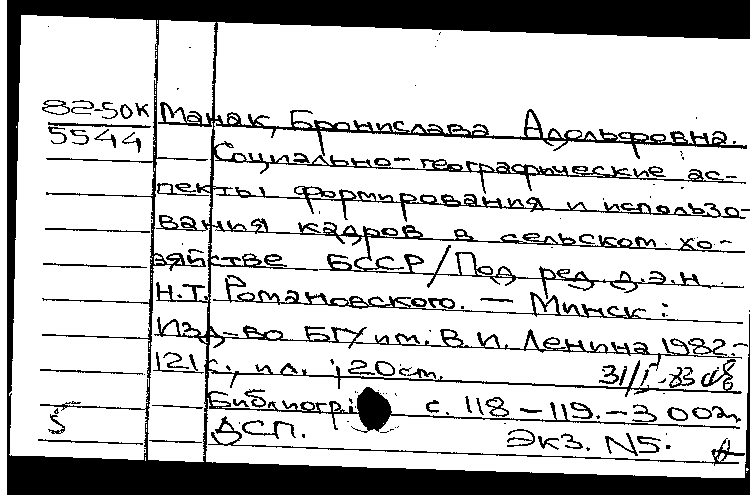 82-50К Манак, Бронислава Адольфовна.
5544
Социально-географические ас-
пекты формирования и использо-
вания кадров в сельском хо-
зяйстве БССР/Под ред. д.э.н
Н.Т. Романовского. — Минск:
Изд-во БГУ им. В.И. Ленина, 1982.-
121 с., ил. ; 20 см.
31/I-83
Библиогр.: с. 118-119. - 3 002н.
5 ДСП. Экз. N5.